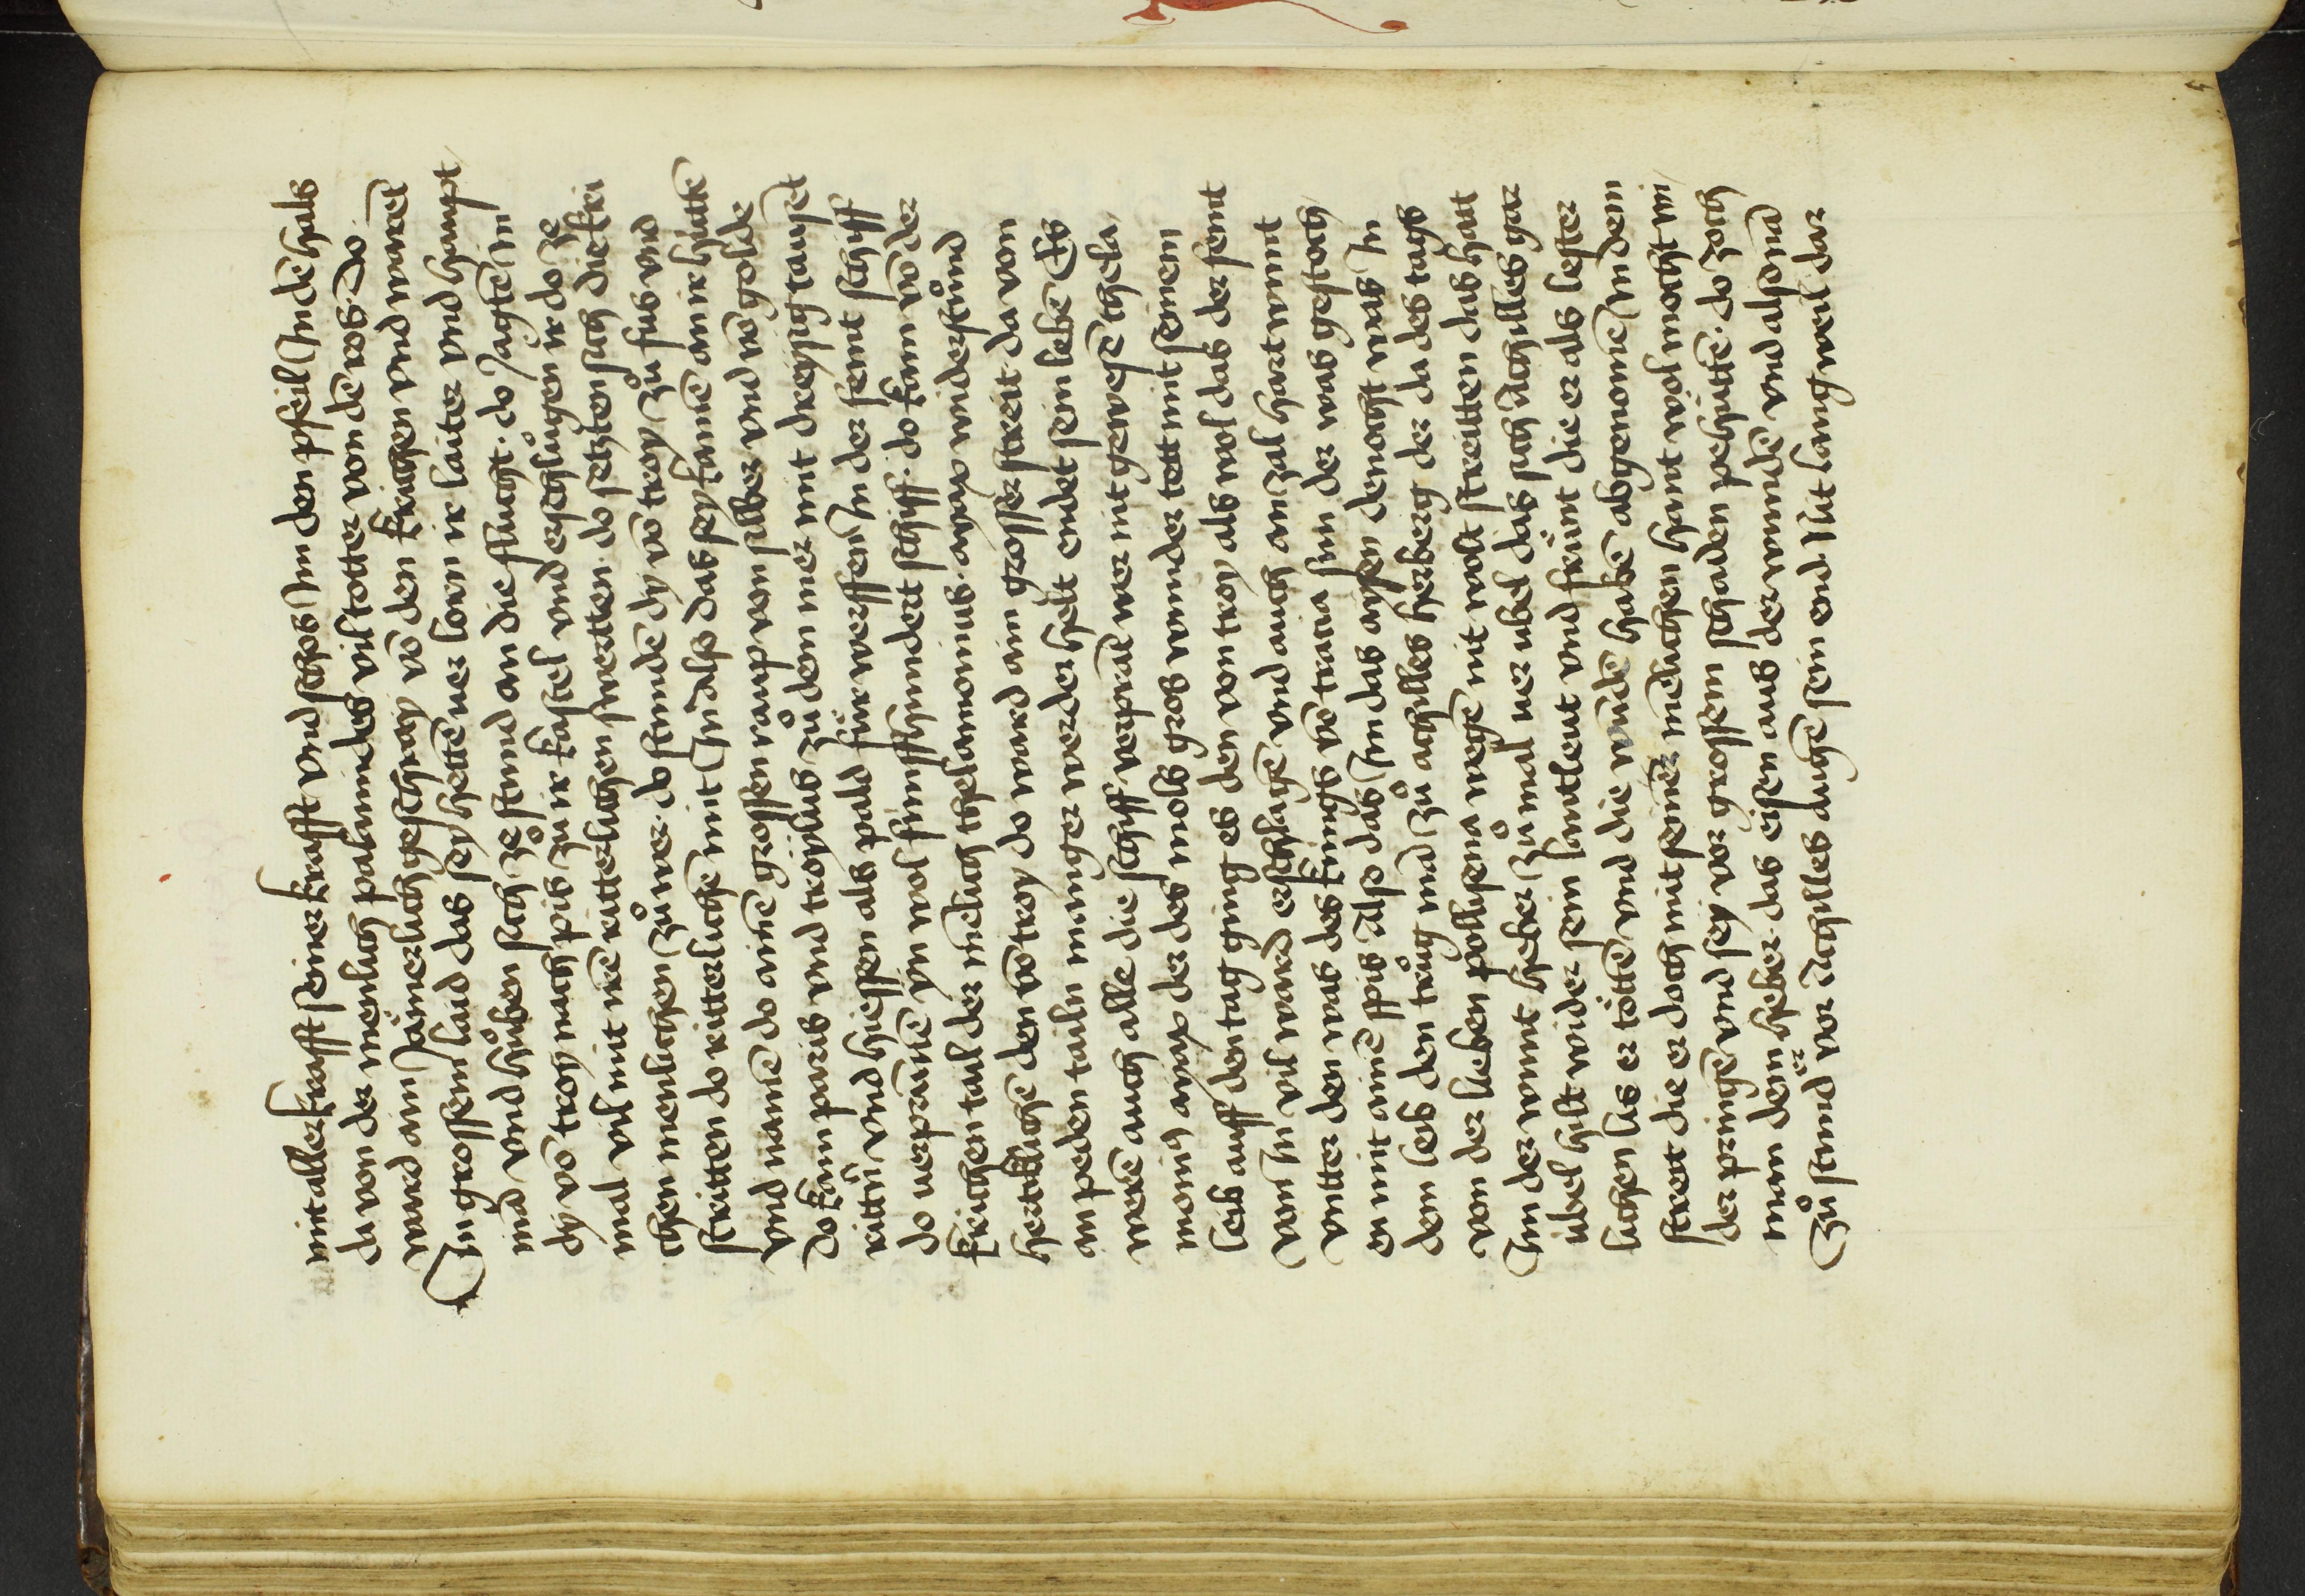 mit aller krafft seiner krafft vnd schos Im den pfeil In dē hals
da von der menlich palamides vil totter von dē ros · Do
ward ain Jämerlich geschray vō den krichen vnd warēt
In grossem laid das sey hettē uer lorn ir laiter vnd haupt
mā vnd hůben sich ze stund an die flucht · do Jagtē In
dy vō troy nach pis zu ir kastel vnd erschlůgen ir do ze
mal vil mit irē ritterlichen swertten · do setzten sich die kri
chen menlichen zů wer · do stundē dy vō troy zů fus vnd
stritten do ritterlichē mit In also das sey kamē an ir hüttē
vnd namē do ainē grossen raup von silber vnd vō golde
Do kam paris vnd troylus zů dem mer mit dreysig tausēt
rittn̄ vnd hiessen als pald für werffen In der feint schiff
do uerprantē yn wol funffhundert schiff · do kam vō der
krichen tail der mēlich thelamonius · ayax widerstůnd
hertiklichē den vō troy do ward ain grosser streit da von
an peden tailn manger werder helt endet sein lebē Es
werē auch alle die schiff verprāt wer nit gewesē thela
monig ayax der des mols gros wunder tett mit seinem
leib auff den tag ging es den von troy als wol das der feint
von In vil ward erschlagē vnd auch an zal hart wunt
vntter den was des kungs vō tracia sun der was gestoch
en mit ainē spis Also das Im das aysen dennocht was In
dem leib den trůg mā zů achilles herberg der da des tags
von der lieben pollisena wegē nit wolt streitten das hatt
Im der wunt heber zů mal uer ubel das sich Achilles gar
übel hilt wider sein lantleut vnd freünt die er als lester
lichen lis er töttē vnd die wundē habē abgenomē In dem
streit die er doch mit seiner mēlichen hant wol mocht wi
der pringē vnd sey vor grossem schaden pehüttē · do zoch
man dem heber · das eisen aus der wundē vnd also nā
zů stund er vor Achilles augē sein end Nit lang weil dar